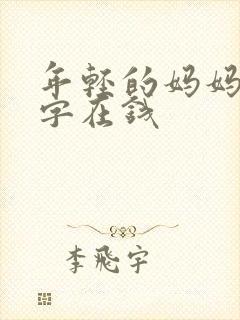 年轻的妈妈
字在线
李飛宇